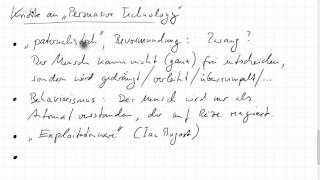 Kritik an „Persuasive Technology"
• „paternalistisch", Bevormundung: Zwang?
Der Mensch kann nicht (ganz) frei entscheiden,
sondern wird gedrängt/verleitet/überrumpelt/...
• Behaviorismus: Der Mensch wird nur als
Automat verstanden, der auf Reize reagiert.
• „Exploitationware" (Ian Bogost)
•